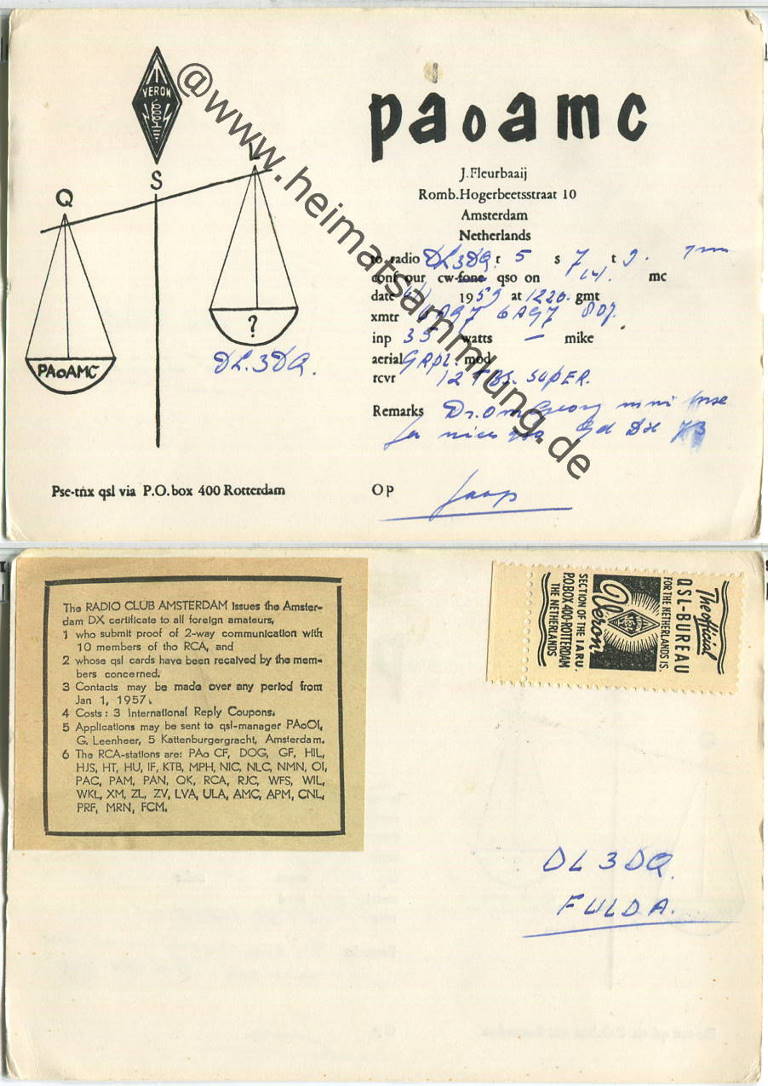 VERON
paoamc
Q
S
L
PAoAMC
?
DL3DQ.
J.Fleurbaaij
Romb.Hogerbeetsstraat 10
Amsterdam
Netherlands
to radio DL3DQ. r 5 s 7 t 9.
conf our cw-fone qso on 14. mc
date 1959 at 1220. gmt
xmtr 6AG7 6AG7 807.
inp 35 watts — mike
aerial GRPL. mod
rcvr 12 TBS. SUPER.
Remarks Dr. Om Georg mni
fr nice qso Gd Dx 73
Pse-tnx qsl via P.O.box 400 Rotterdam
OP Jaap
@www.heimatsammlung.de
The RADIO CLUB AMSTERDAM issues the Amster-
dam DX certificate to all foreign amateurs,
1 who submit proof of 2-way communication with
10 members of tho RCA, and
2 whose qsl cards have been received by the mem-
bers concerned.
3 Contacts may be made over any period from
Jan 1, 1957.
4 Costs: 3 International Reply Coupons.
5 Applications may be sent to qsl-manager PAoOI,
G. Leenheer, 5 Kattenburgergracht, Amsterdam.
6 The RCA-stations are: PAo CF, DOG, GF, HIL,
HJS, HT, HU, IF, KTB, MPH, NIC, NLC, NMN, OI,
PAC, PAM, PAN, QK, RCA, RJC, WFS, WIL,
WKL, XM, ZL, ZV, LVA, ULA, AMC, APM, CNL,
PRF, MRN, FCM.
The official
QSL-BUREAU
FOR THE NETHERLANDS IS.
Veron
SECTION OF THE I A R U.
P.O. BOX 400-ROTTERDAM
THE NETHERLANDS
DL3DQ.
FULDA.